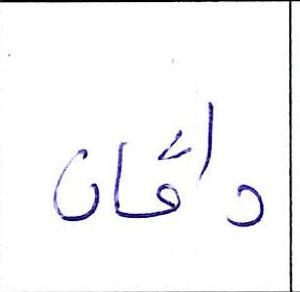 داقان